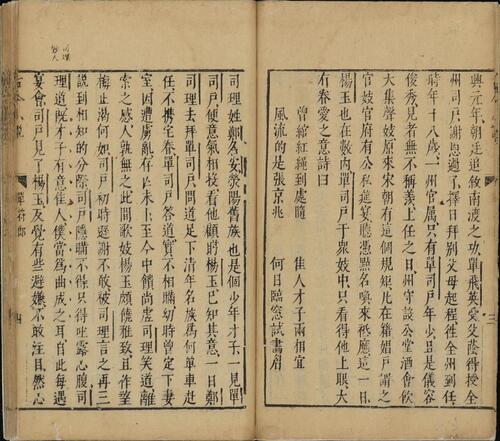 興元年朝廷追敘南渡之功單飛英受父蔭得授全
州司戶謝恩過了擇日拜別父母起程往全州到任
時年十八歲一州官屬只有單司戶年少且是儀容
俊秀見者無不稱羨上任之日州守設公堂酒會飲
大集聲妓原來宋朝有這個規矩凡在籍娼戶謂之
官妓官府有公私筵宴聽憑點名喚來祗應這一日
楊玉也在數內單司戶于眾妓中只看得他上眼大
有眷愛之意詩曰
曾綰紅繩到處隨　佳人才子兩相宜
風流的是張京兆　何日臨窓試畫眉
三
司理姓鄭名安滎陽舊族也是個少年才子一見單
司戶便意氣相投看他顧盻楊玉已知其意一日鄭
司理去拜單司戶問道足下清年名族為何單車赴
任不攜宅眷單司戶答道實不相瞞幼時曾定下妻
室因遭虜亂存亡未卜至今中饋尚虛司理笑道離
索之感人孰無之此間歌妓楊玉頗饒雅致且作望
梅止渴何如司戶初時遜謝不敢被司理言之再三
說到相知的分際司戶隱瞞不得只得吐露心腹司
理道既才子有意佳人僕當為曲成之耳自此每遇
宴會司戶見了楊玉反覺有些避嫌不敢注目然心
四